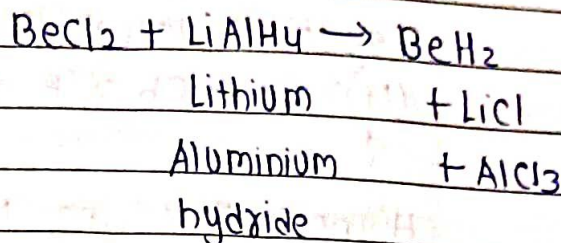 BeCl2 + LiAlH4 → BeH2
Lithium + LiCl
Aluminium + AlCl3
hydride